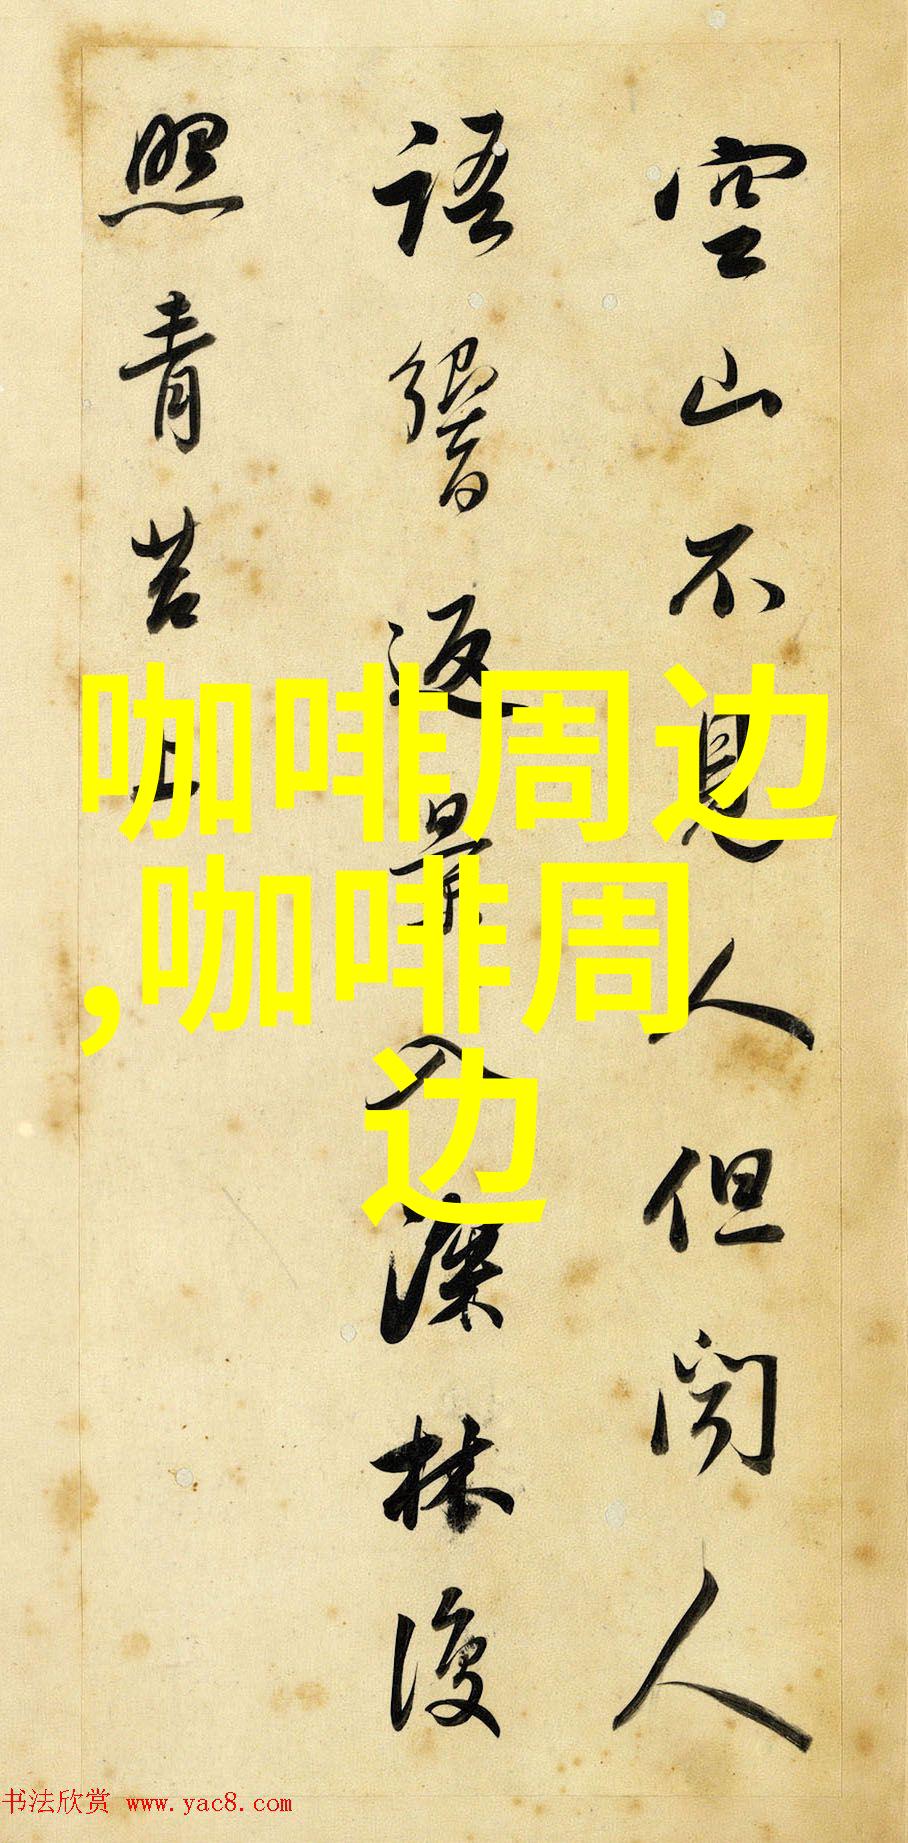 空山不見人但闻人
語響返景入深林復
照青苔上
咖啡周边
,咖啡周
边
书法欣赏 www.yac8.com